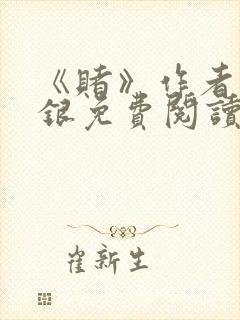 《賭》作者
銀免費閱讀
崔新生